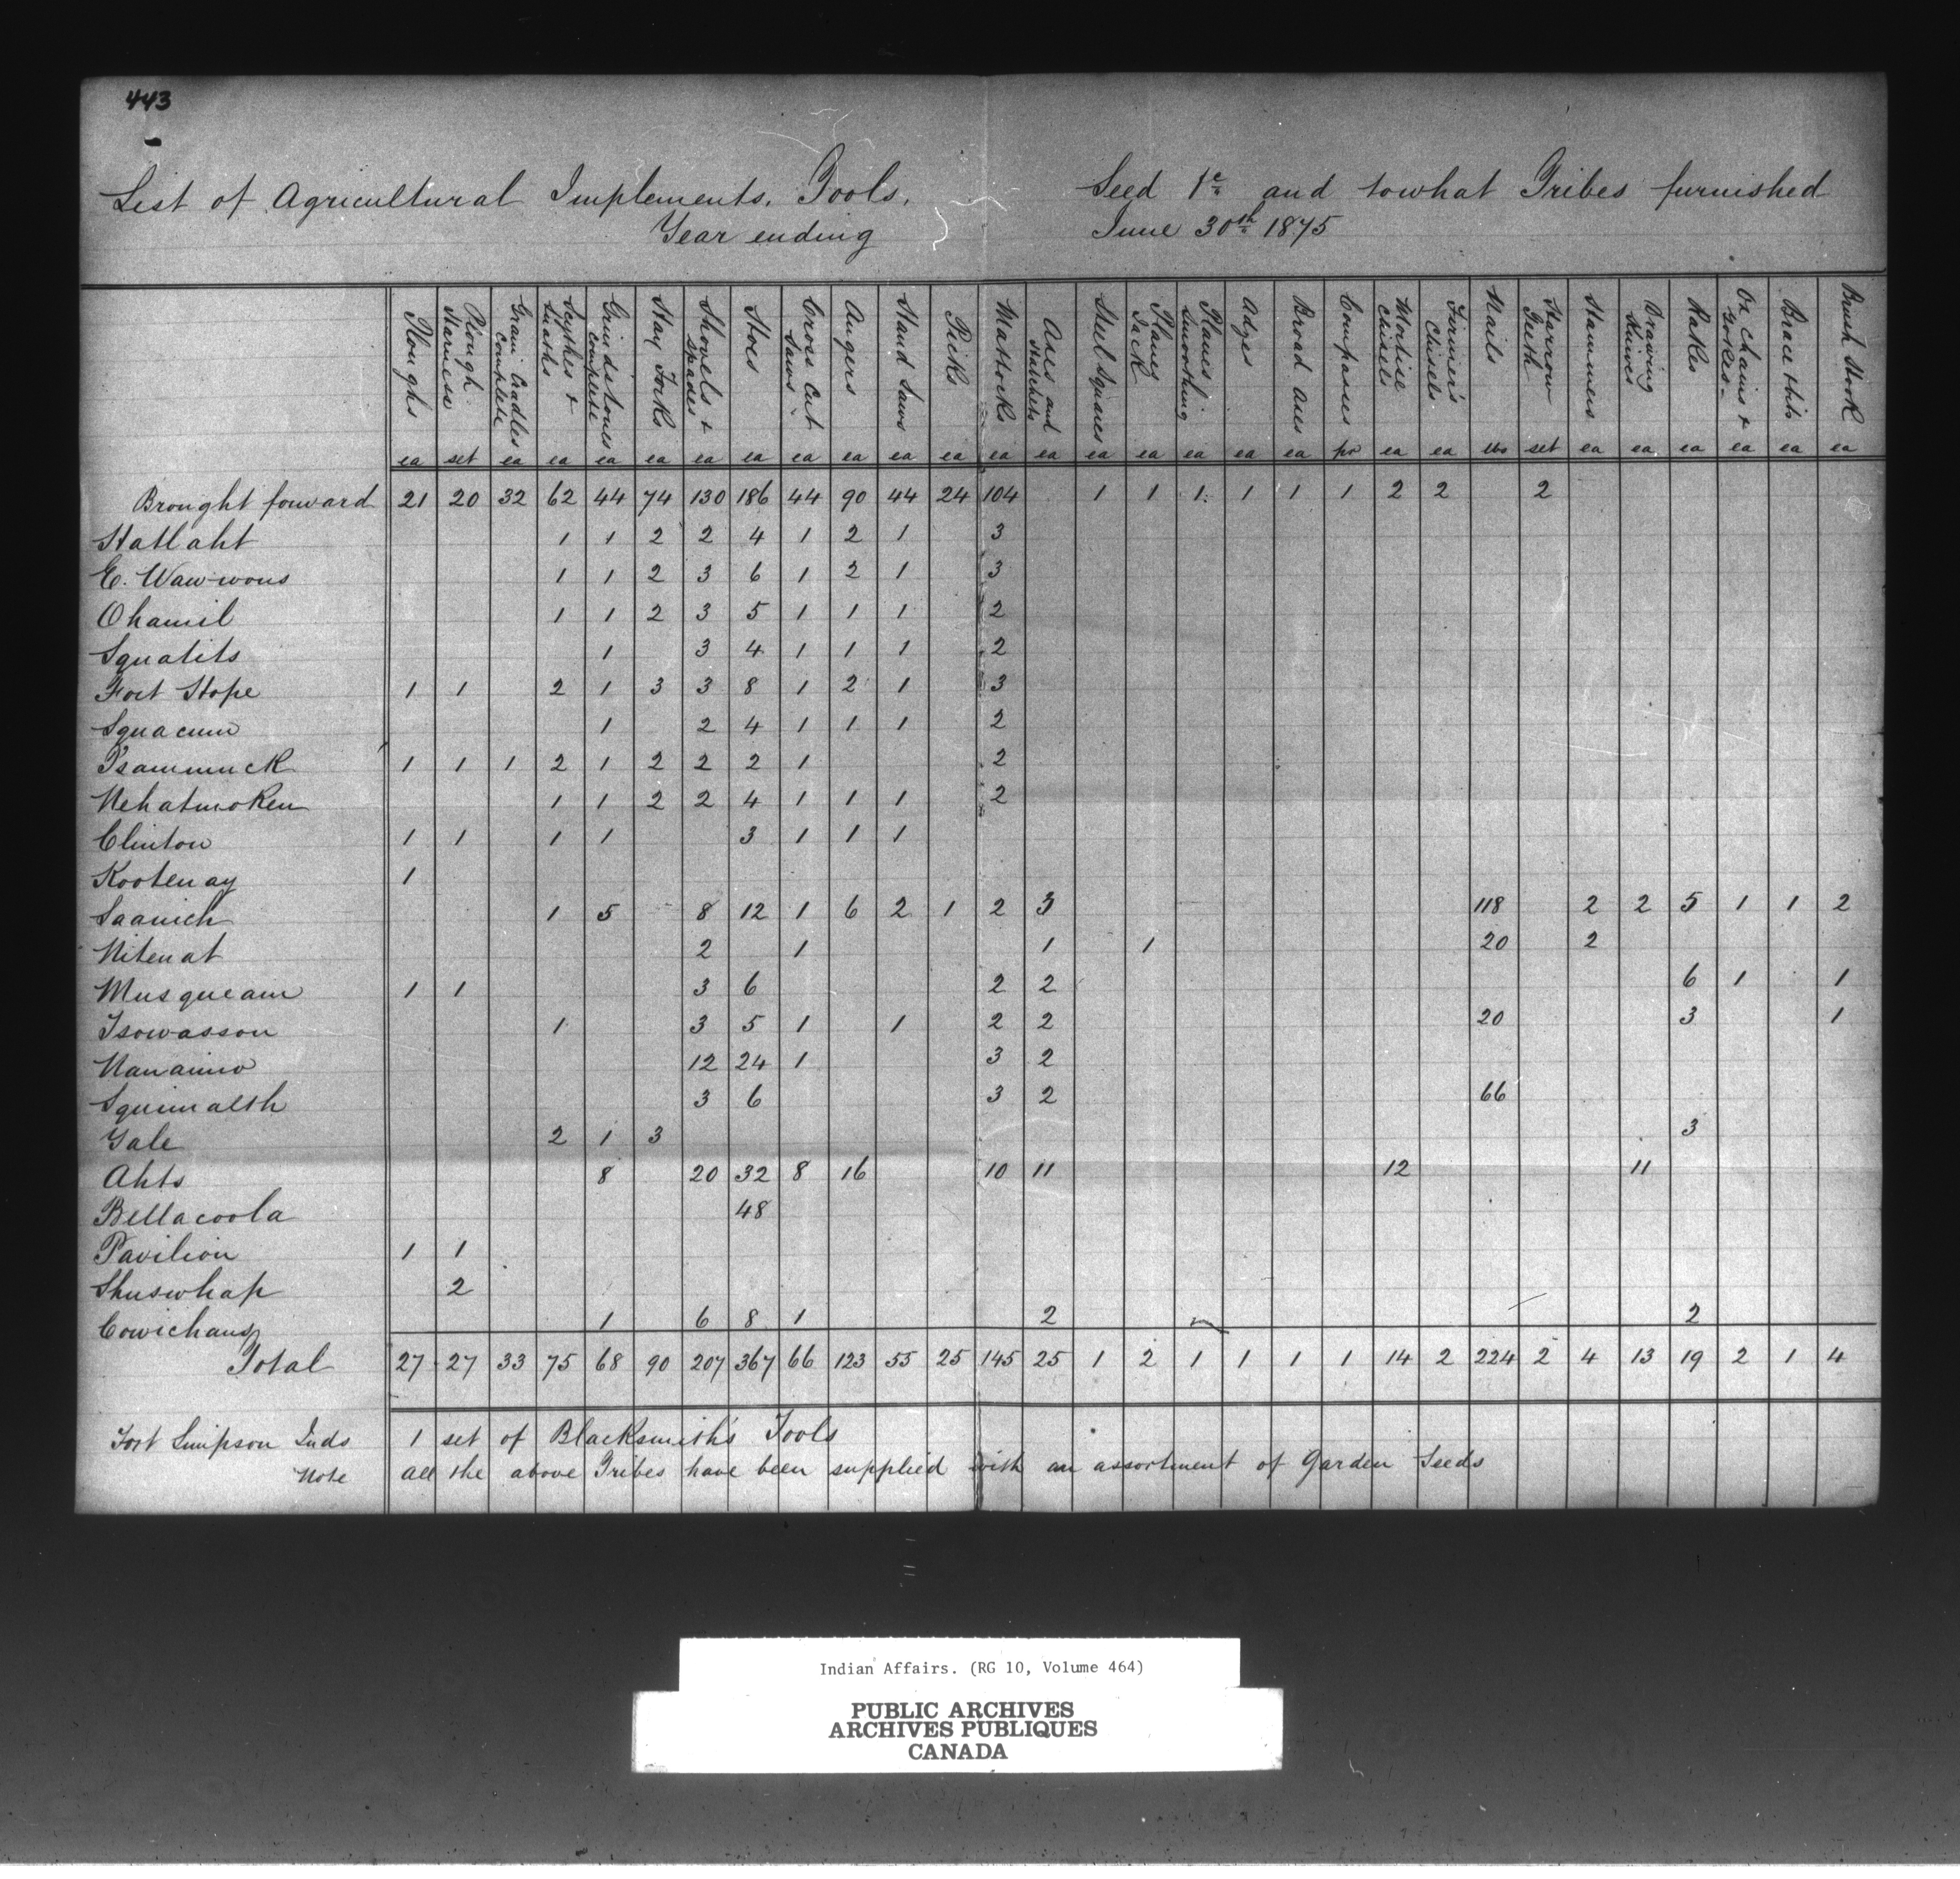 443
List of Agricultural Implements, Tools, Seed &c and to what Tribes furnished
Year ending June 30th 1875
Ploughs ea
Plough Harness set
Grain Cradles Complete ea
Scythes & Snaths ea
Grindstones Complete ea
Hay Forks ea
Shovels & Spades ea
Hoes ea
Cross Cut Saws ea
Augers ea
Hand Saws ea
Picks ea
Mattocks ea
Axes and Hatchets ea
Steel Squares ea
Planes Jack ea
Planes Smoothing ea
Adzes ea
Broad Axes ea
Compasses pr
Mortise Chisels ea
Firmer's Chisels ea
Nails lbs
Harrow Teeth set
Hammers ea
Drawing Knives ea
Rakes ea
Ox Chains & Yokes ea
Brace & bits ea
Brush Hook ea
Brought forward 21 20 32 62 44 74 130 186 44 90 44 24 104 1 1 1 1 1 1 2 2 2
Hatlaht 1 1 2 2 4 1 2 1 3
E. Waw-wous 1 1 2 3 6 1 2 1 3
Ohamil 1 1 2 3 5 1 1 1 2
Squatits 1 3 4 1 1 1 2
Fort Hope 1 1 2 1 3 3 8 1 2 1 3
Squacum 1 2 4 1 1 1 2
Tsammuck 1 1 1 2 1 2 2 2 1 2
Nehatmoken 1 1 2 2 4 1 1 1 2
Clinton 1 1 1 1 3 1 1 1
Kootenay 1
Saanich 1 5 8 12 1 6 2 1 2 3 118 2 2 5 1 1 2
Nitenat 2 1 1 1 20 2
Musqueam 1 1 3 6 2 2 6 1 1
Tsowasson 1 3 5 1 1 2 2 20 3 1
Nanaimo 12 24 1 3 2
Squimalth 3 6 3 2 66
Yale 2 1 3 3
Ahts 8 20 32 8 16 10 11 12 11
Bellacoola 48
Pavilion 1 1
Shuswhap 2
Cowichans 1 6 8 1 2 2
Total 27 27 33 75 68 90 207 367 66 123 55 25 145 25 1 2 1 1 1 1 14 2 224 2 4 13 19 2 1 4
Fort Simpson Inds 1 set of Blacksmith's Tools
Note all the above Tribes have been supplied with an assortment of Garden Seeds
Indian Affairs. (RG 10, Volume 464)
PUBLIC ARCHIVES
ARCHIVES PUBLIQUES
CANADA